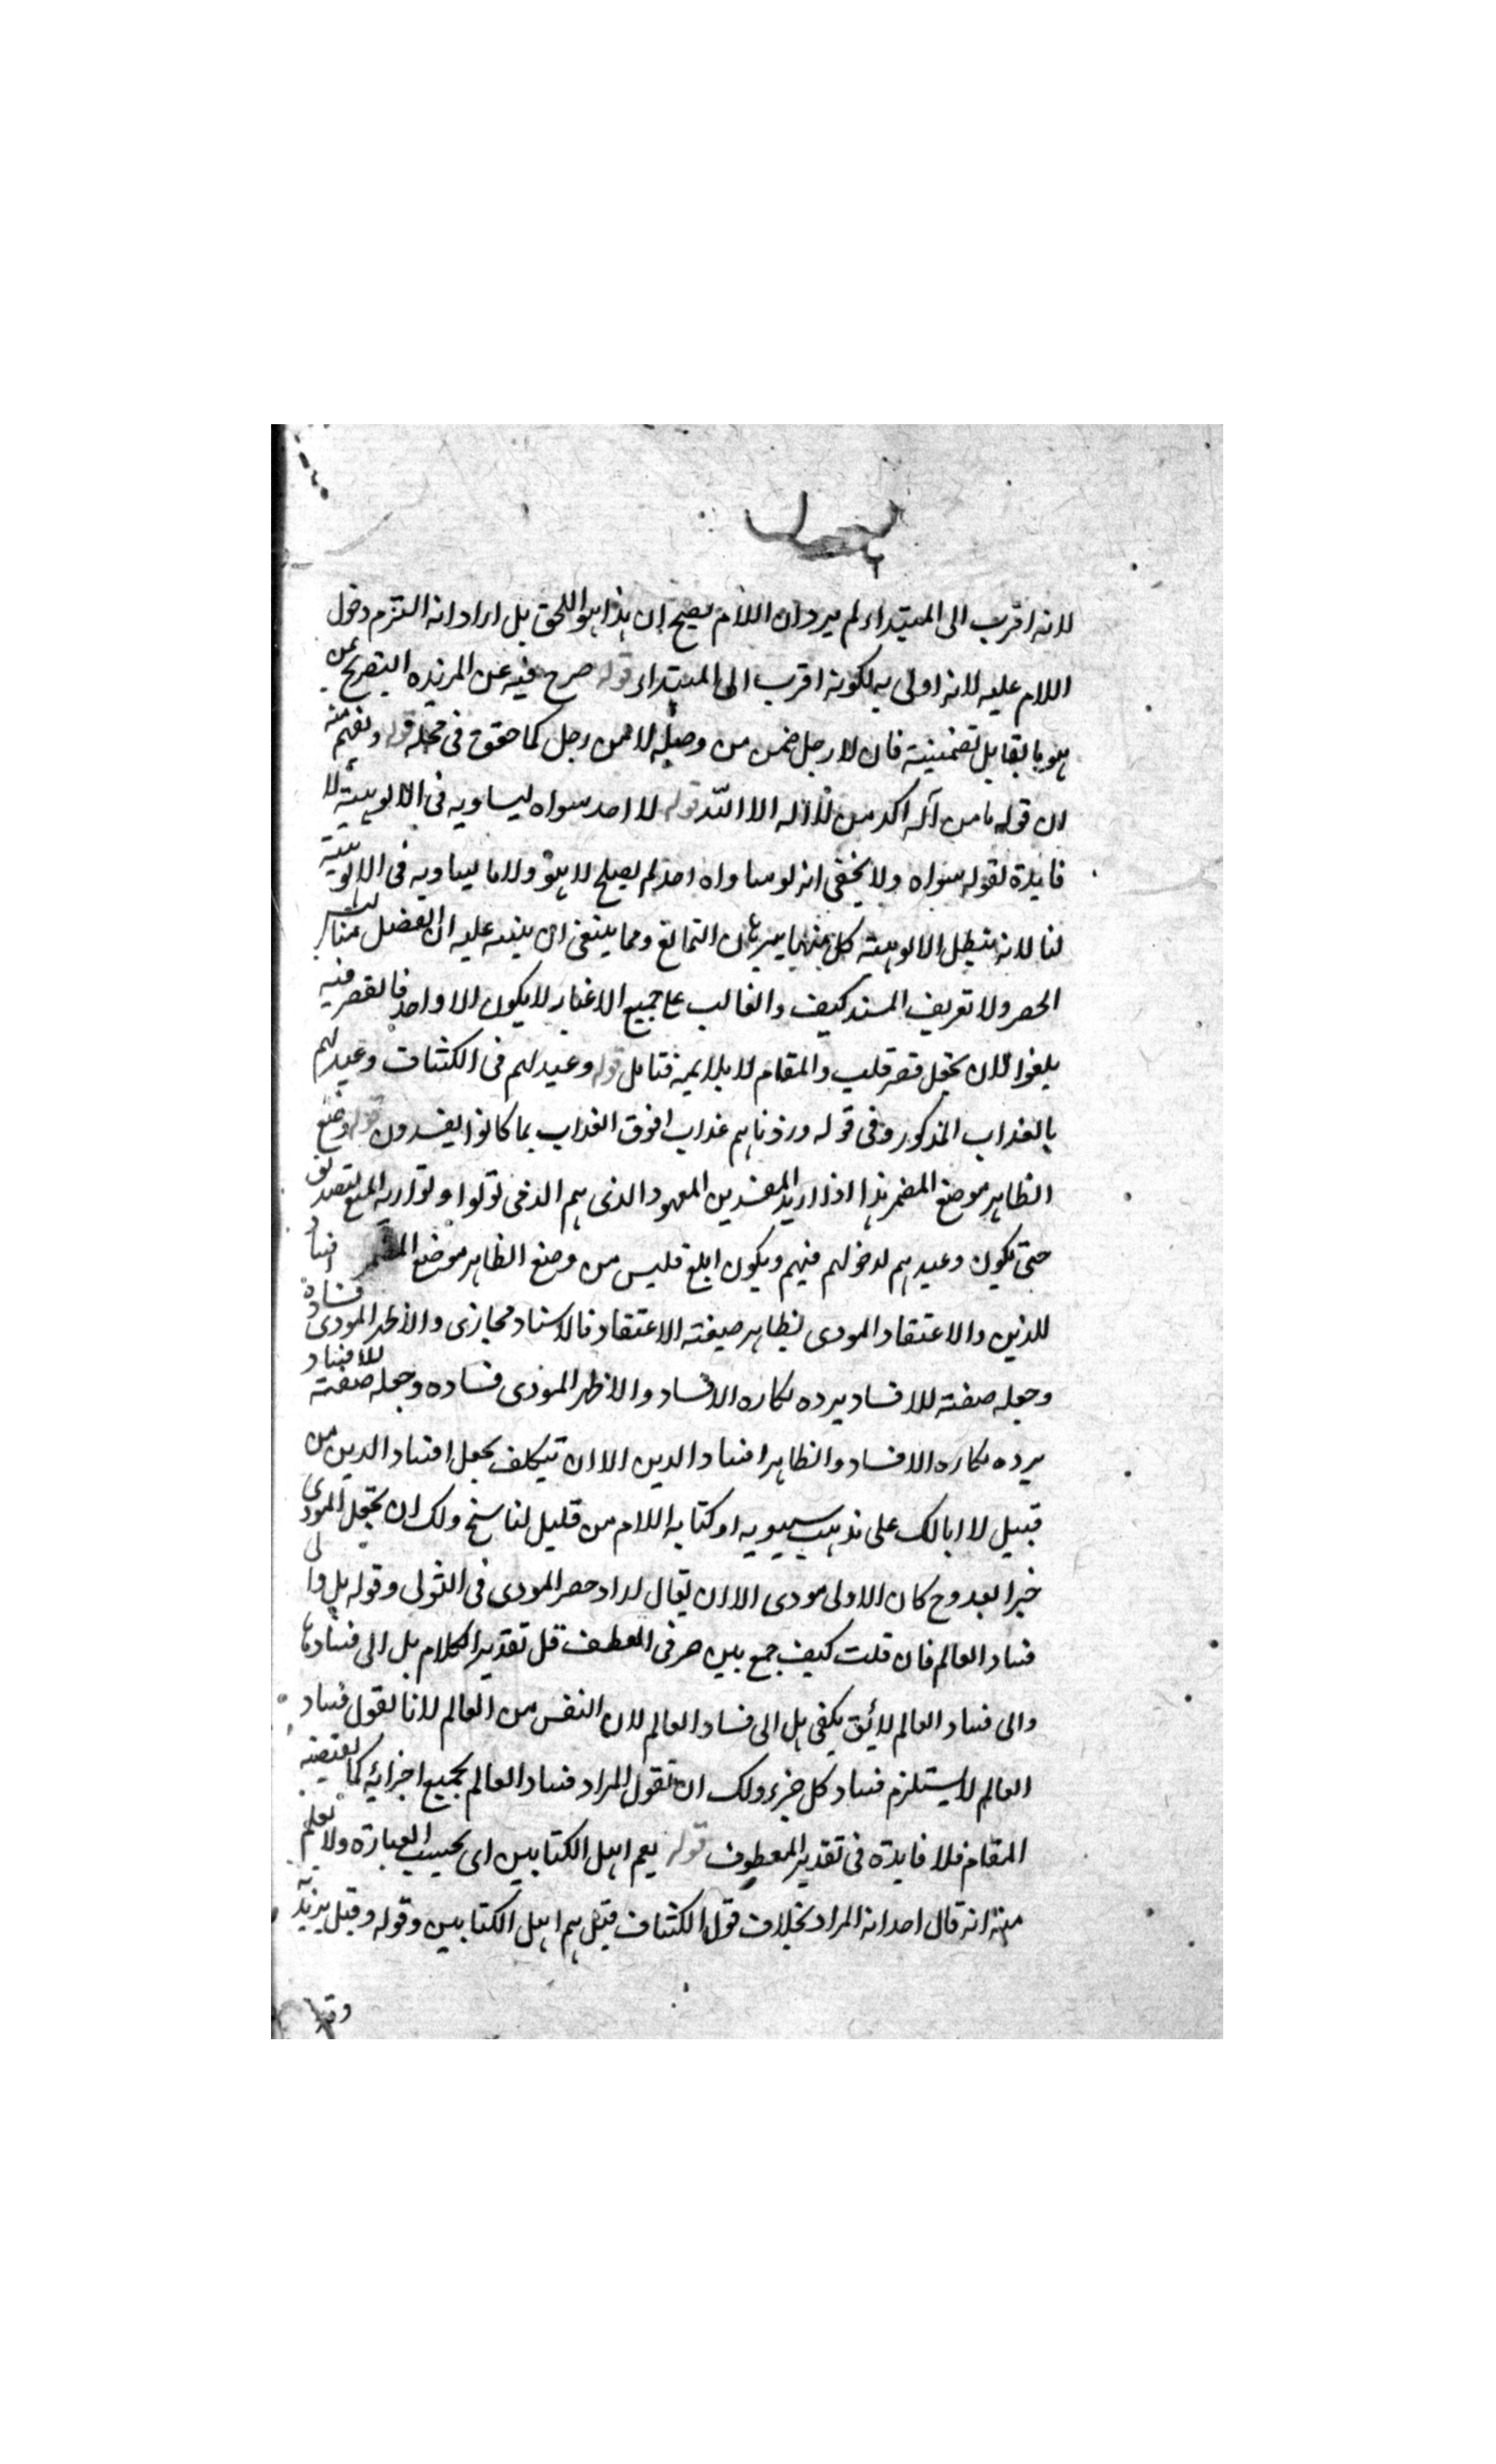 لانه اقرب الى المبتداء لم يرد ان اللام يصيح ان هذا هو اللحق بل اراد انه التزم دخول
اللام عليه لانه اولى به لكونه اقرب الى المبتداء قوله صرح فيه عن المزيده التصريح عن
هو بالقابل تضمينية فان لا رجل ضمن من وصله لا من رجل كما حقق فى محله قوله ونفهم منه
ان قوله ما من آله اكد من لا اله الا الله قوله لا احد سواه يساويه فى الالوهية لا
فايدة لقوله سواه ولا يخفى انه لو ساواه احد لم يصلح لا هو ولا ما يساويه فى الالوهيته
لنا لانه تبطل الالوهيته كل منهما ببرهان التمانع ومما ينبغى ان ينبه عليه ان الفضل
الحصر ولا تعريف المسند كيف والغالب على جميع الاغيار لا يكون الا واحد فالقصر فيه
يلغوا لان يجعل قصر قلب والمقام لا يلايمه فتامل قوله وعيد لهم فى الكشاف وعيد لهم
بالعذاب المذكور وفى قوله وزدناهم عذابا فوق العذاب بما كانوا يفسدون قوله وضع
الظاهر موضع المضمر هذا اذا اريد المفسدين المعهود الذى هم الذى تولوا ولو اريد
حتى يكون وعيدهم لدخولهم فيهم ويكون ابلغ فليس من وضع الظاهر موضع المضمر افساد
للدين والاعتقاد المودى بظاهر صيغته الاعتقاد فالاسناد مجازى والاظهر المودى فساده
وجعله صفته للافساد يرده نكاره الافساد والاظهر الموذى فساده وجعله صفته للافساد
يرده نكاره الافساد والظاهر افساد الدين الا ان تيكلف بجعل افساد الدين من
قبيل لا ابالك على مذهب سيبويه او كتابه اللام من قليل لناسخ ولك ان تجعل المودى
خبرا بعد وح كان الاولى مودى الا ان يقال اراد حصر المودى فى التولى وقوله بل والى
فساد العالم فان قلت كيف جمع بين حرفى العطف قل تقدير الكلام بل الى فسادها
والى فساد العالم لا يق يكفى بل الى فساد العالم لان النفس من العالم لانا نقول فساد
العالم لا يستلزم فساد كل جزء ولك ان تقول المراد فساد العالم بجميع اجزائه كما يقتضيه
المقام فلا فايدة فى تقدير المعطوف قوله يعم اهل الكتابين اى بحسب العبارة ولا نعلم
منه انه قال احد انه المراد بخلاف قول الكشاف قيل هم اهل الكتابين وقوله وقيل يريد به